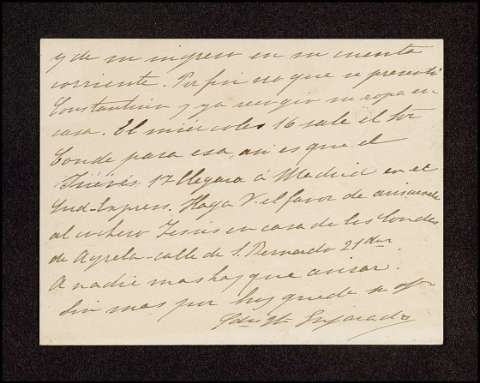 y de su ingreso en su cuenta
corriente. Por fin veo que se presentó
Constantino y ya recogió su ropa en
casa. El miércoles 16 sale el Sor
Conde para esa, asi es que el
Jueves 17 llegara á Madrid en el
Sud-Express. Haga V. el favor de avisarselo
al cochero Jesús en casa de los Condes
de Ayrela - calle de S. Bernardo 21
A nadie mas hay que avisar.
Sin mas por hoy quede su